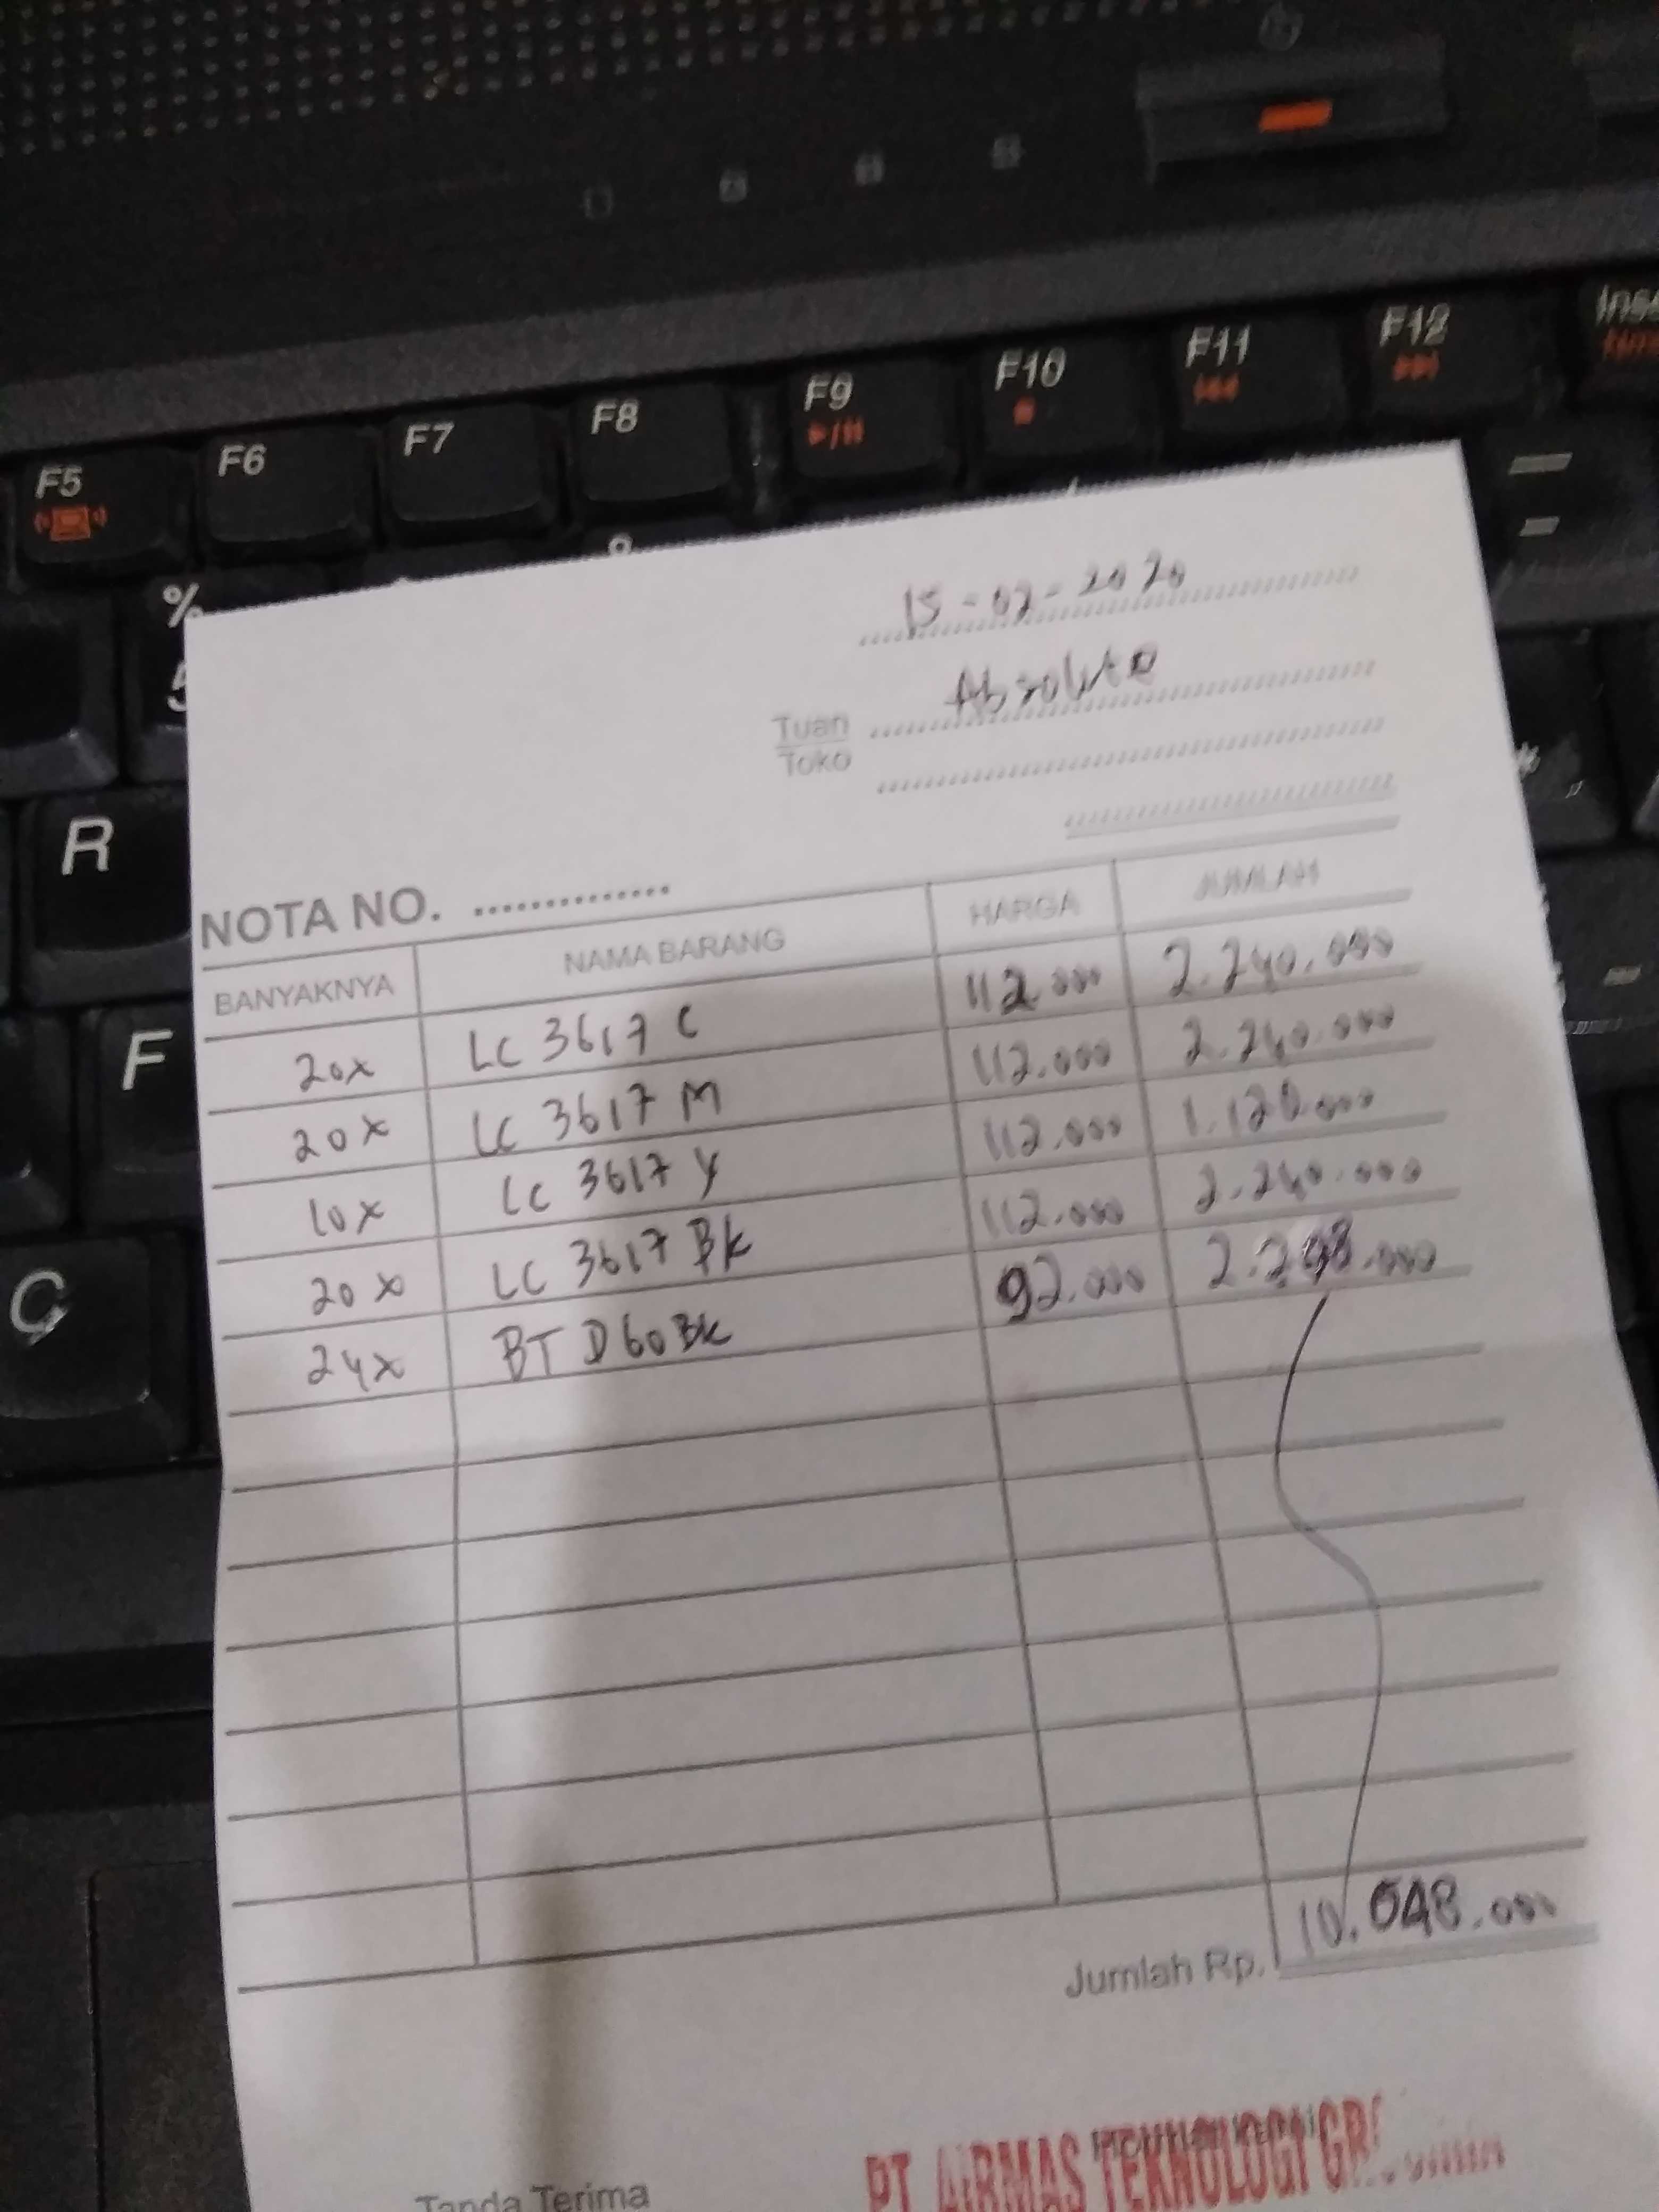 F5 F6 F7 F8 F9 F10 F11 F12
%
5
R
F
C
15-02-2020
Tuan Absolute
Toko
NOTA NO. ..............
BANYAKNYA NAMA BARANG HARGA JUMLAH
20x LC 3617 C 112.000 2.240.000
20x LC 3617 M 112.000 2.240.000
10x LC 3617 Y 112.000 1.120.000
20x LC 3617 BK 112.000 2.240.000
24x BT D60BK 92.000 2.298.000
Jumlah Rp. 10.048.000
Tanda Terima
PT. AIRMAS TEKNOLOGI